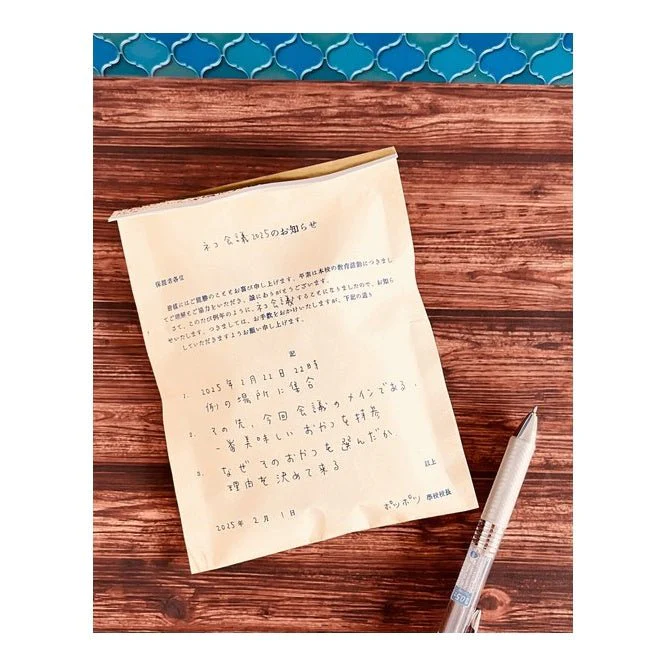 ネコ会議2025のお知らせ
保護者各位
皆様にはご健勝のこととお喜び申し上げます。平素は本校の教育活動につきまし
てご理解とご協力をいただき、誠にありがとうございます。
さて、このたび例年のように、ネコ会議することになりましたので、お知ら
せいたします。つきましては、お手数をおかけいたしますが、下記の通り
していただきますようお願い申し上げます。
記
1. 2025年2月22日22時
例の場所に集合
2. その後、今回会議のメインである、
一番美味しいおやつを持参
3. なぜそのおやつを選んだか
理由を決めて来る
以上
2025年 2月 1日
ポツポツ 學校校長